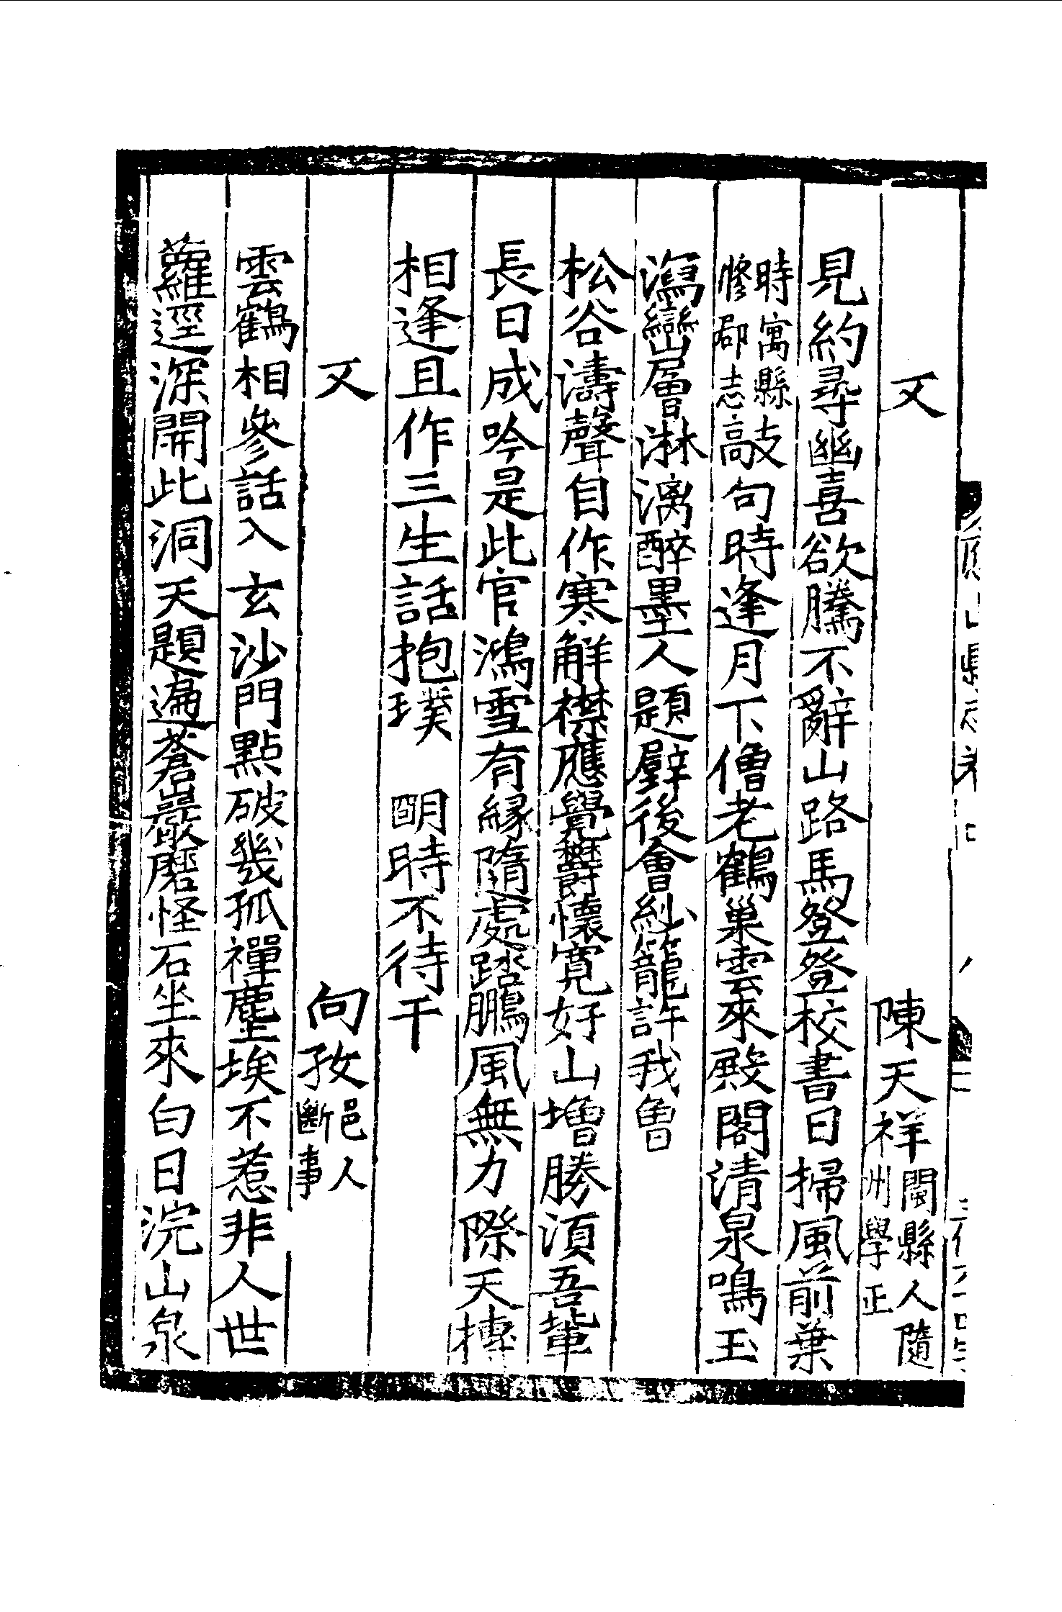 又 陳天祥 閩縣人隨州學正
見約尋幽喜欲騰不辭山路馬登登校書日掃風前葉
時寓縣修郡志敲句時逢月下僧老鶴巢雲來殿閣清泉鳴玉
瀉巒層淋漓醉墨人題壁後會紗籠許我曾
松谷濤聲自作寒解襟應覺欝懷寬好山增勝湏吾輩
長日成吟是此官鴻雪有緣隨處踏鵬風無力際天摶
相逢且作三生話抱璞 明時不待干
又 向孜 邑人斷事
雲鶴相參話入玄沙門點破幾狐禪塵埃不惹非人世
蘿逕深開此洞天題遍蒼巖磨怪石坐來白日浣山泉